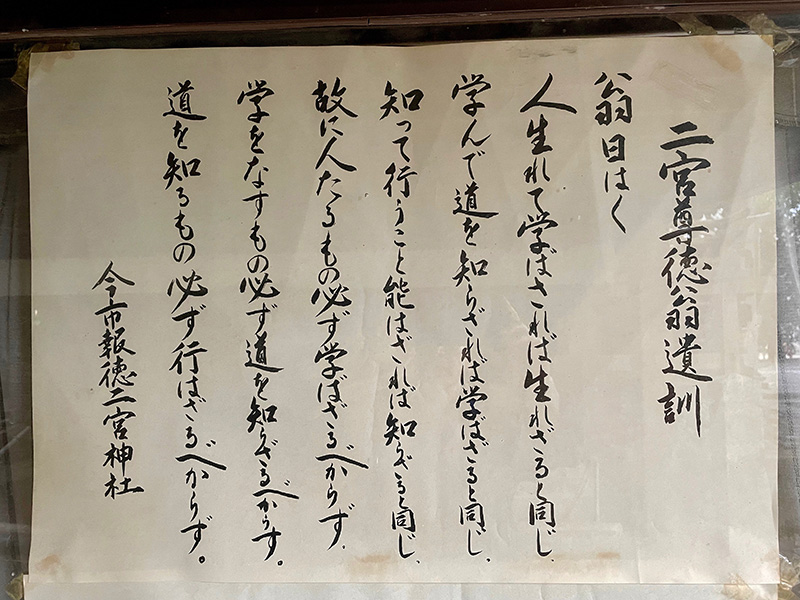 二宮尊徳翁遺訓
翁曰はく
人生れて学ばされば生れざると同じ、
学んで道を知らざれば学ばざると同じ、
知って行うこと能はざれば知らざると同じ、
故に人たるもの必ず学ばざるべからず、
学をなすもの必ず道を知らざるべからず。
道を知るもの必ず行はざるべからず。
今市報徳二宮神社